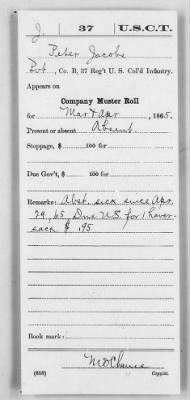 J. 37 U.S.C.T.
Peter Jacobs
Pvt., Co. B, 37 Reg't U. S. Col'd Infantry.
Appears on
Company Muster Roll
for Mar & Apr, 1865.
Present or absent Absent
Stoppage, $ 100 for
Due Gov't, $ 100 for
Remarks: Abst. sick since Apr.
29, 65, Due U.S. for 1 haver-
sack $ .95
Book mark:
(858) Copyist.